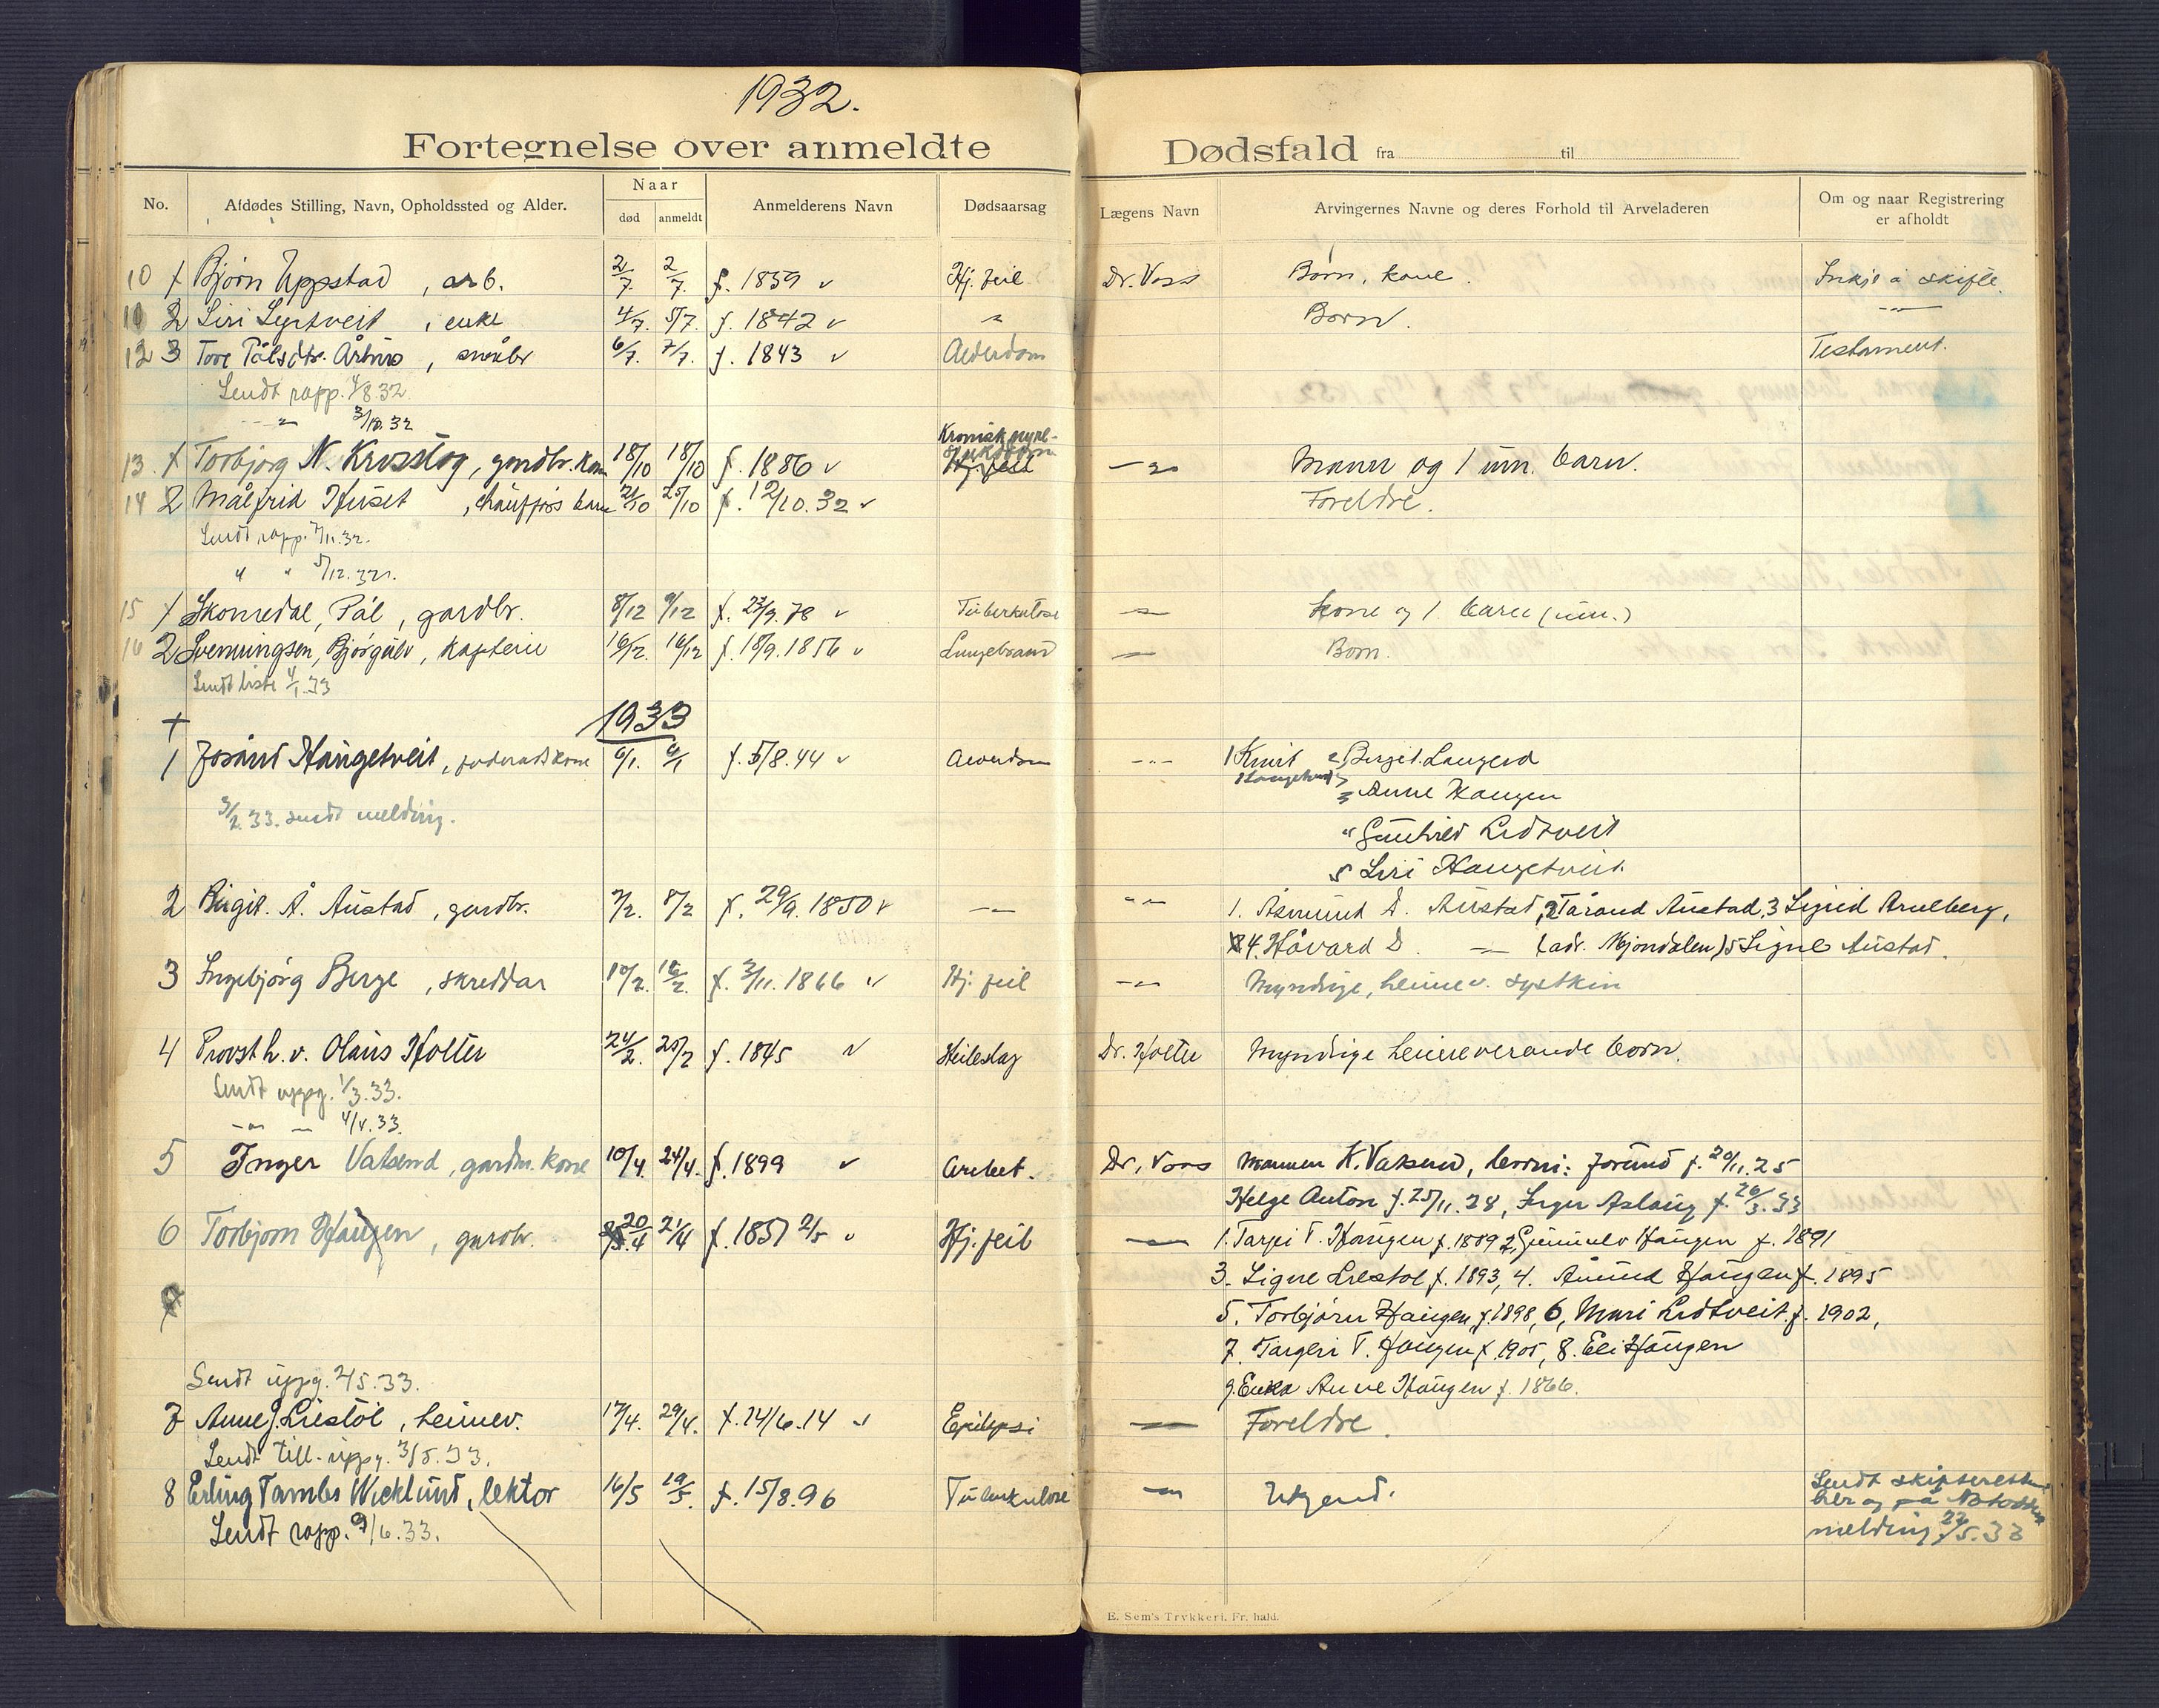 1932.
Fortegnelse over anmeldte Dødsfald fra til
No. Afdødes Stilling, Navn, Opholdssted og Alder. Naar død anmeldt Anmelderens Navn Dødsaarsag Lægens Navn Arvingernes Navne og deres Forhold til Arveladeren Om og naar Registrering er afholdt
10 1 Bjørn Uppstad, arb. 2/7. 2/7. f. 1859 v Hj. feil Dr. Voss Børn, kone. Inkje å skifte.
11 2 Siri Lyrtveit, enke 4/7. 5/7. f. 1842 v -"- Born. -"-
12 3 Tore Pålsdtr. Århus, småbr 6/7. 7/7. f. 1843 v Alderdom Testament.
Sendt rapp. 4/8.32
-"- 3/10.32
13. 1 Torbjørg N. Krosstog, gardbr. kone 18/10 18/10 f. 1886 v Kronisk nyre- sjukdom -"- Mann og 1 um. barn.
14 2 Målfrid Huset, chaufførs barn 21/10 25/10 f. 12/10.32 v Foreldre.
Sendt rapp. 7/11.32.
" " 5/12.32.
15 1 Skomedal, Pål, gardbr. 8/12 9/12 f. 23/9.78 v Tuberkulose -"- kone og 1 barn (um.)
16 2 Svenningsen, Bjørgulv, kaptein 16/12. 16/12 f. 18/9.1856 v Lungebrand -"- Born.
Sendt liste 4/1.33
1933
1 Jorånd Haugetveit, føderådskone 6/1. 6/1 f. 5/8.44 v Alderdom -"- 1 Knut Haugetveit 2, Bergit Langerd
3 Anne Haugen
3/2.33. sendt melding.
" Gunhild Lidtveit
5 Siri Haugetveit.
2 Birgit. Å. Austad, gardbr. 7/2. 8/2 f. 29/9.1850 v -"- -"- 1. Åsmund D. Austad, 2 Tårand Austad, 3 Sigrid Arnlberg,
4. Håvard D. -"- (adr. Mjøndalen) 5 Signe Austad.
3 Ingebjørg Berge, skreddar 10/2. 16/2. f. 3/11.1866 v Hj. feil -"- Myndige, heimev. systkin
4 Provst h. v. Olaus Holter 24/2. 25/2 f. 1845 v Heileslag Dr. Holter Myndige heimeverande born.
Sendt uppg. 1/3.33.
-"- - 4/4.33.
5 Inger Vatsend, gardm. kone 10/4. 24/4. f. 1899 v Dr. Voss Mannen K. Vatsend, born: Jorund f. 20/11.25
Helge Anton f. 25/11.28, Inger Aslaug f. 26/3.33
6 Torbjørn Haugen, gardbr. 20/4 21/4 f. 1851 2/5 v Hj. feil -"- 1. Tarjei T. Haugen f. 1889 2, Gunnulv Haugen f. 1891
3. Signe Liestøl f. 1893, 4. Åmund Haugen f. 1895
5. Torbjørn Haugen f. 1898, 6, Mari Lidtveit f. 1902,
7. Targeir T. Haugen f. 1905, 8. Eli Haugen
Sendt uppg. 2/5.33.
9. Enka Anne Haugen f. 1866.
7 Anne J. Liestøl, heimev. 17/4. 29/4. f. 14/6.14 v Epilepsi -"- Foreldre.
Sendt till. uppg. 3/5.33.
8 Erling Tambs Wicklund, lektor 16/5 19/5. f. 15/8.96 Tuberkulose -"- Ukjend. Sendt skifteretten
her og på Notodden
melding 23/5.33
Sendt rapp. 9/6.33.
E. Sem's Trykkeri, Fr. hald.